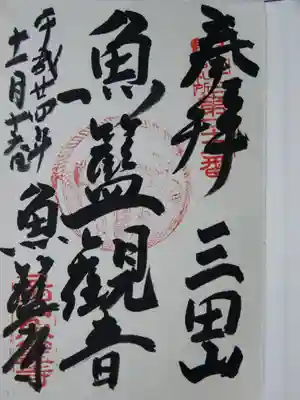 奉拝
三田山
魚籃觀音
平成廿四年
十一月十六日
魚籃寺